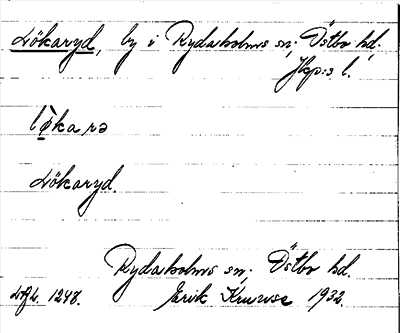 Lökaryd, by i Rydaholms sn; Östbo hd.
Jkp:s l.
lø̀ka rə
Lökaryd.
Rydaholms sn; Östbo hd.
Lfl. 1248. Erik Kruuse 1932.